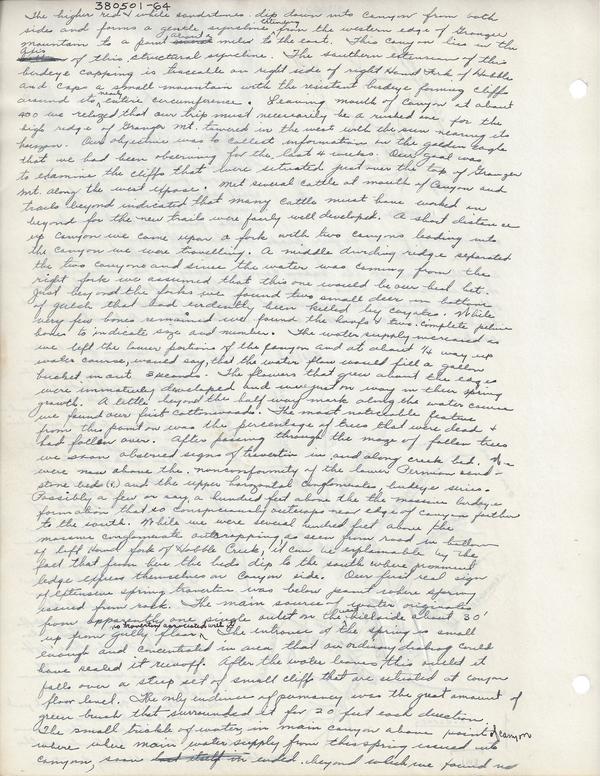 380501-64
The higher red & white sandstones dip down into canyon from both
sides and forms a gentle syncline extending from the western edge of Granger
mountain to a point about 2 miles to the east. This canyon lies in the
axis of this structural syncline. The southern extension of this
birdseye capping is traceable on right side of right Hand Fork of Hobble
and caps a small mountain with the resistant birdseye forming cliffs
around its nearly entire circumference. Leaving mouth of canyon at about
400 we relized that our trip must necessarily be a rushed one for the
high ridge of Granger Mt. towered in the west with the sun nearing its
horizon. Our objective was to collect information on the golden eagle
that we had been observing for the last 4 weeks. Our goal was
to examine the cliffs that were situated just over the top of Granger
Mt. along the west expose. Met several cattle at mouth of Canyon and
trails beyond indicated that many cattle must have worked in
beyond for the new trails were fairly well developed. A short distance
up canyon we came upon a fork with two canyons leading into
the canyon we were travelling. A middle dividing ridge separated
the two canyons and since the water was coming from the
right fork we assumed that this one would be our best bet.
Just beyond the forks we found two small deer in bottom
of gulch that had evidently been killed by coyotes. While
very few bones remained we found the hoofs & two complete pelvic
bones to indicate size and number. The water supply increased as
we left the lower portions of the canyon and at about 1/4 way up
water course, would say, that the water flow would fill a gallon
bucket in out 3 seconds. The flowers that grew about the edges
were immaturely developed and were just on way in their spring
growth. A little beyond the half way mark along the water course
we found our first cottonwoods. The most noticeable feature
from this point on was the percentage of trees that were dead &
had fallen over. After passing through the maze of fallen trees
we soon observed signs of travertine in and along creek bed. We
were now above the nonconformity of the lower Permian sand-
stone beds (?) and the upper horizontal conglomerate birdseye series.
Possibly a few or say, a hundred feet above the the massive birdseye
formation that so conspicuously outcrops near edge of canyon farther
to the south. While we were several hundred feet above the
massive conglomerate outcropping, as seen from road in bottom
of left Hand fork of Hobble Creek, it can be explainable by the
fact that from here the beds dip to the south where prominent
ledge express themselves on canyon side. Our first real sign
of extensive spring travertine was below point where spring
issued from rock. The main source of water originates
from apparently one single outlet on the west hillside about 30'
up from gully floor, no travertine associated with it. The intrance of the spring is small
enough and concentrated in area that an ordinary dishrag could
have sealed it runoff. After the water leaves this outlet it
falls over a steep set of small cliffs that are situated at canyon
floor level. The only evidence of permancy was the great amount of
green brush that surrounded it for 20 feet each direction.
The small trickle of water, in main canyon above point of canyon
where where main water supply from this spring issued into
canyon, soon ended beyond which we found no